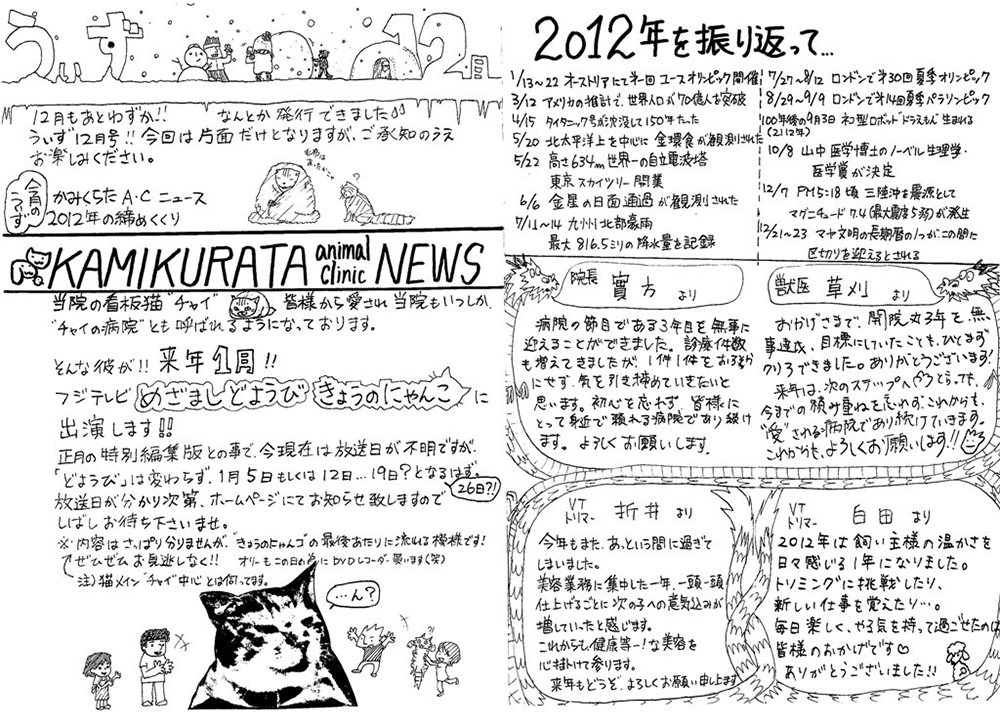 うぃず 12月
12月もあとわずか!! なんとか発行できました♪♪
うぃず12月号!! 今回は片面だけとなりますが、ご承知のうえ
お楽しみください。
今月のうぃず
かみくらた A・C ニュース
2012年の締めくくり
KAMIKURATA animal clinic NEWS
当院の看板猫"チャイ" 皆様から愛され当院もいつしか、
"チャイの病院"とも呼ばれるようになっております。
そんな彼が!! 来年1月!!
フジテレビ めざましどようび きょうのにゃんこ に
出演します!!
正月の特別編集版との事で、今現在は放送日が不明ですが、
「どようび」は変わらず、1月5日もしくは12日…19日?となるはず。
26日?!
放送日が分かり次第、ホームページにてお知らせ致しますので
しばしお待ち下さいませ。
※内容はさっぱり分りませんが、"きょうのにゃんこ"の最後あたりに流れる模様です!
ぜムぜムお見逃しなく!! オリーもこの日の為にDVDレコーダー買います(笑)
注)猫メイン"チャイ中心"とは伺ってます。
…ん?
2012年を振り返って…
1/13~22 オーストリアにて第一回ユースオリンピック開催
3/12 アメリカの推計で、世界人口が70億人を突破
4/15 タイタニック号が沈没して150年たった
5/20 北太平洋上を中心に金環食が観測された
5/22 高さ634m世界一の自立電波塔
東京スカイツリー開業
6/6 金星の日面通過が観測された
7/11~14 九州北部豪雨
最大816.5ミリの降水量を記録
7/27~8/12 ロンドンで第30回夏季オリンピック
8/29~9/9 ロンドンで第14回夏季パラリンピック
100年後の9月3日 ネコ型ロボットドラえもん生まれる
(2112年)
10/8 山中医学博士のノーベル生理学・
医学賞が決定
12/7 PM5:18頃 三陸沖を震源として
マグニチュード7.4(最大震度5弱)が発生
12/21~23 マヤ文明の長期暦の1つがこの間に
区切りを迎えるとされる
院長 實方 より
病院の節目である3年目を無事に
迎えることができました。診療件数
も増えてきましたが、1件1件をおろそか
にせず、気を引き締めていきたいと
思います。初心を忘れず、皆様に
とって身近で頼れる病院であり続け
ます。よろしくお願いします。
獣医 草刈 より
おかげさまで、開院丸3年を、無
事達成、目標にしていたことも、ひとまず
クリアできました。ありがとうございます!
来年は、次のステップへうつろうとも、
今までの積み重ねを忘れず、これからも、
"愛"される病院であり続けていきます。
これからも、よろしくお願いします!!
VT トリマー 折井 より
今年もまた、あっという間に過ぎて
しまいました。
美容業務に集中した一年、一頭一頭
仕上げるごとに次の子への意気込みが
増していったと感じます。
これからも健康第一!な美容を
心掛けて参ります。
来年もどうぞ、よろしくお願い申し上げます
VT トリマー 白田 より
2012年は飼い主様の温かさを
日々感じる1年になりました。
トリミングに挑戦したり、
新しい仕事を覚えたり…。
毎日楽しく、やる気を持って過ごせたのは
皆様のおかげです♡
ありがとうございました!!